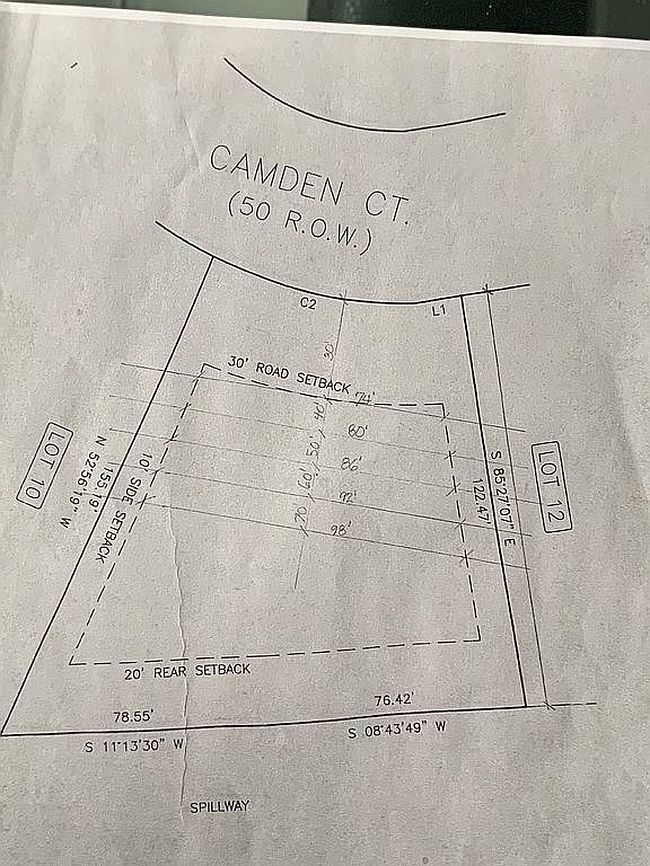 CAMDEN CT.
(50 R.O.W.)
C2
L1
30'
30' ROAD SETBACK
74'
40'
80'
50'
86'
60'
92'
70'
98'
LOT 10
N 52°56'19" W
155.19'
10' SIDE SETBACK
S 85°27'07" E
122.47'
LOT 12
20' REAR SETBACK
78.55'
76.42'
S 11°13'30" W
S 08°43'49" W
SPILLWAY